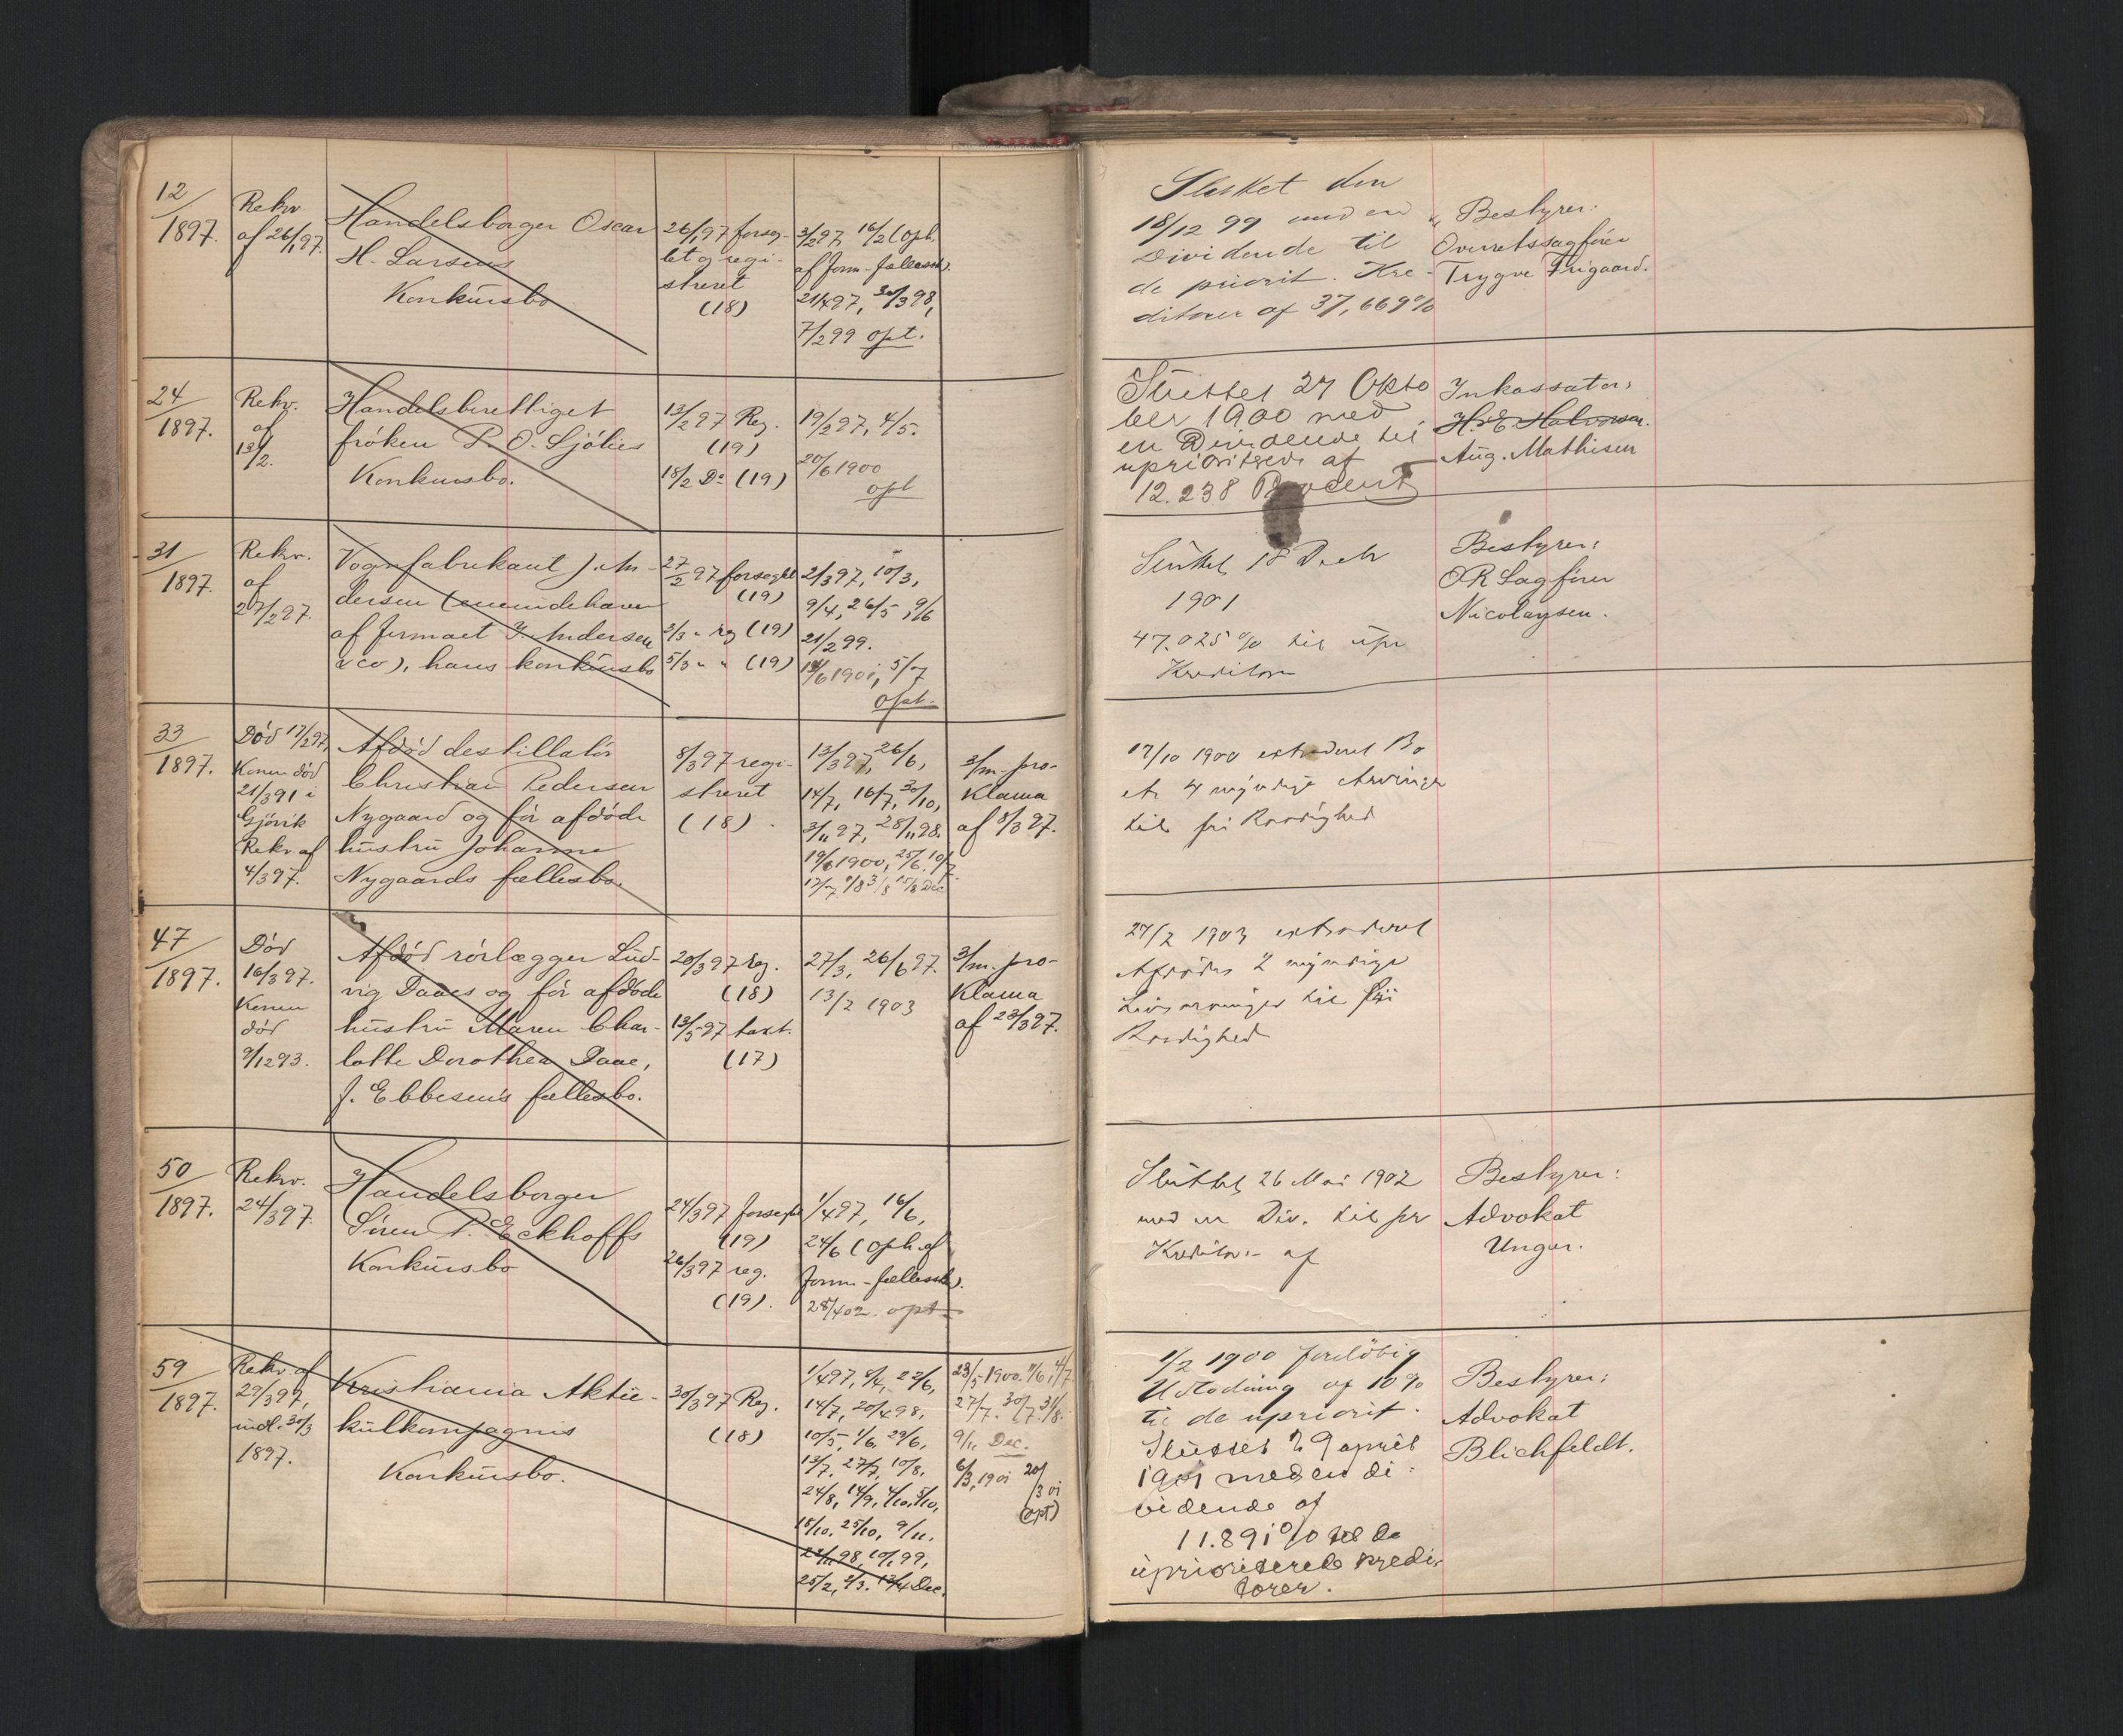 12/1897.
Rekv.
af 26/1 97.
Handelsborger Oscar
H. Larsens
Konkursbo
26/1 97 forseg-
let og regi-
streret
(18)
3/2 97, 16/2 (Oph.
af form-fællessk).
21/4 97, 30/3 98,
7/2 99 opt.
Sluttet den
18/12 99 med en
Dividende til
de priorit. Kre-
ditorer af 37,669%
Bestyrer:
Overretssagfører
Trygve Frigaard.
24/1897.
Rekv.
af
13/2.
Handelsberettiget
frøken P. O. Sjølies
Konkursbo.
13/2 97 Reg.
(19)
18/2 Do (19)
19/2 97, 4/5.
20/6 1900
opt
Sluttet 27 Okto
ber 1900 med
en Dividende til
uprioriterede af
12.238 Procent
Inkassator
H. E. Halvorsen.
Aug. Mathisen
31/1897.
Rekv.
af
27/2 97.
Vognfabrikant J. An-
dersen (eneindehaver
af firmaet J. Andersen
& co), hans konkursbo
27/2 97 forseglet
(19)
2/3 " reg (19)
5/3 " " (19)
2/3 97, 10/3,
9/4, 26/5, 9/6
21/2 99.
14/6 1901, 5/7
opt.
Sluttet 18 Decbr
1901
47.025 % til upr
Kreditorer
Bestyrer:
OR Sagfører
Nicolaysen.
33/1897.
Død 17/2 97,
Konen død
21/3 91 i
Gjøvik
Rekv af
4/3 97.
Afdød destillatør
Christian Pedersen
Nygaard og før afdøde
hustru Johanne
Nygaards fællesbo.
8/3 97 regi-
streret
(18)
13/3 97, 26/6,
14/7, 16/7, 30/10,
3/11 97, 28/11 98.
19/6 1900, 25/6. 10/7.
3/m. pro-
klama
af 8/3 97.
17/10 1900 extraderet Bo
et 4 myndige Arvinger
til fri Raadighed
47/1897.
Død
16/3 97.
Konen
død
9/12 93.
Afdød rørlægger Lud-
vig Daaes og før afdøde
hustru Maren Char-
lotte Dorothea Daae,
f. Ebbesens fællesbo.
20/3 97 reg.
(18)
13/5 97 taxt.
(17)
27/3, 26/6 97.
13/2 1903
3/m. pro-
klama
af 23/3 97.
27/2 1903 extraderet
Afdødes 2 myndige
Livsarvinger til fri
Raadighed
50/1897.
Rekv.
24/3 97.
Handelsborger
Søren P. Eckhoffs
Konkursbo
24/3 97 forseglet
(19)
26/3 97 reg.
(19).
1/4 97, 16/6,
24/6 (Oph. af
form-fællessk).
28/4 02. opt
Sluttet 26 Mai 1902
med en Div. til pr
Kreditorer af
Bestyrer:
Advokat
Unger.
59/1897.
Rekv. af
29/3 97,
indl. 30/3
1897.
Kristiania Aktie-
kulkompagnis
Konkursbo.
30/3 97 Reg.
(18)
1/4 97, 8/4, 22/6,
14/7, 20/4 98,
10/5, 1/6, 29/6,
13/7, 27/7, 10/8,
24/8, 14/9, 4/10, 5/10,
18/10, 25/10, 9/11,
23/11 98, 10/1 99,
25/2, 2/3. 13/4 Dec.
23/5 1900. 11/6, 4/7
27/7. 30/7. 31/8.
9/11 Dec.
6/3 1901 20/3 01
(opt)
1/2 1900 foreløbig
Udlodning af 10%
til de upriorit.
Sluttet 29 april
1901 med en di-
vidende af
11.891% til de
uprioriterede kredi-
torer.
Bestyrer:
Advokat
Blichfeldt.